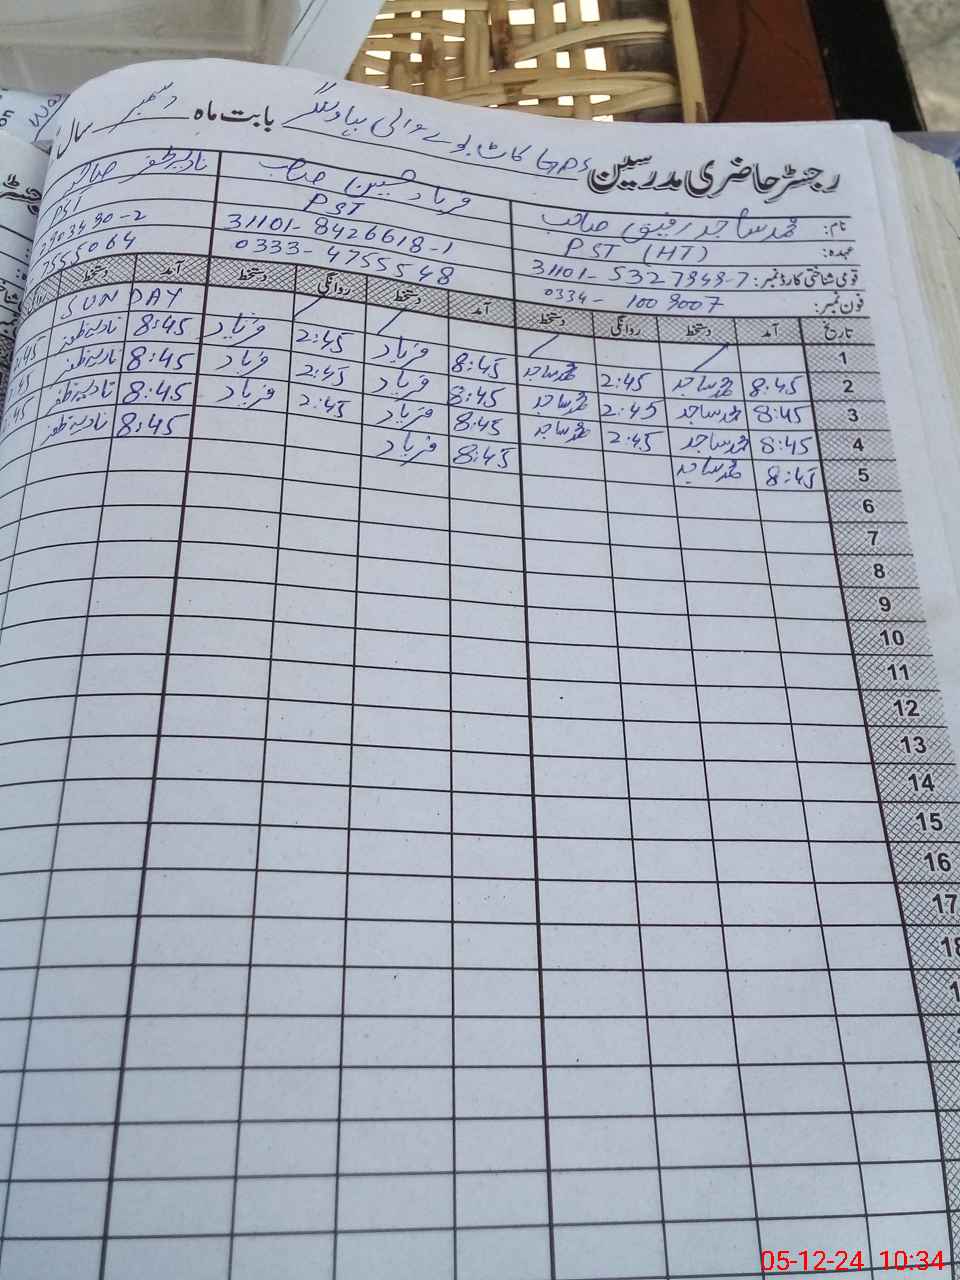 رجسٹر حاضری مدرسین GPS کاٹ بورے والی بہاولنگر بابت ماہ دسمبر سال
نام: محمد ساجد رفیق صاحب فرہاد حسین صاحب نادیہ ظفر صاحبہ
عہدہ: PST (HT) PST PST
قومی شناختی کارڈ نمبر: 31101-5327848-7 31101-8426618-1
فون نمبر: 0334-1009007 0333-4755548 7555064
تاریخ آمد دستخط روانگی دستخط آمد دستخط روانگی دستخط آمد دستخط
1 SUNDAY
2 8:45 محمد ساجد 2:45 محمد ساجد 8:45 فرہاد 2:45 فرہاد 8:45 نادیہ ظفر
3 8:45 محمد ساجد 2:45 محمد ساجد 8:45 فرہاد 2:45 فرہاد 8:45 نادیہ ظفر
4 8:45 محمد ساجد 2:45 محمد ساجد 8:45 فرہاد 2:45 فرہاد 8:45 نادیہ ظفر
5 8:45 محمد ساجد 8:45 فرہاد 8:45 نادیہ ظفر
6
7
8
9
10
11
12
13
14
15
16
17
18
05-12-24 10:34